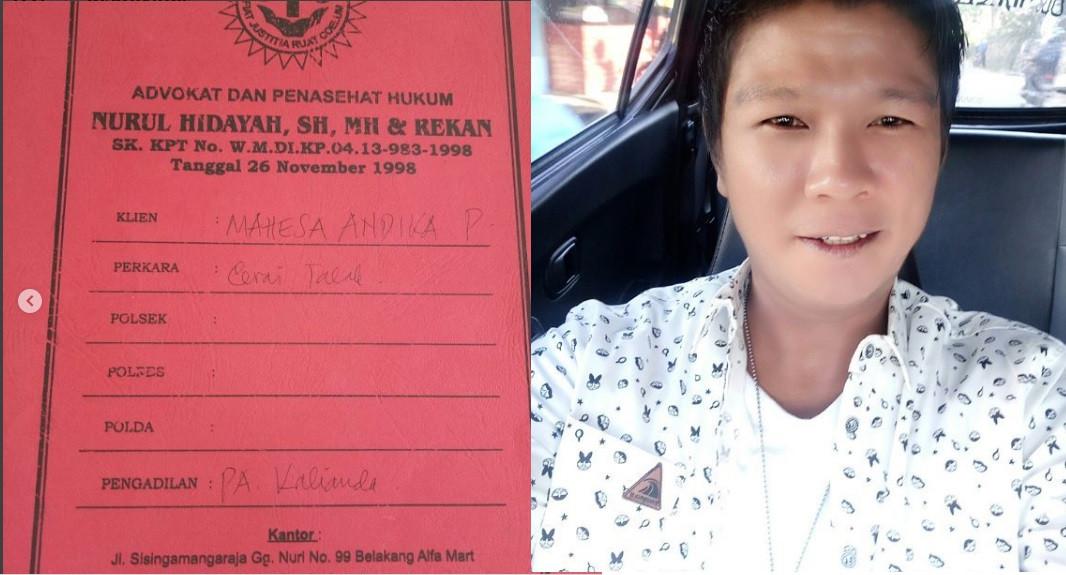 FIAT JUSTITIA RUAT COELUM
ADVOKAT DAN PENASEHAT HUKUM
NURUL HIDAYAH, SH, MH & REKAN
SK. KPT No. W.M.DI.KP.04.13-983-1998
Tanggal 26 November 1998
KLIEN : MAHESA ANDIKA P.
PERKARA : Cerai Talak.
POLSEK :
POLRES :
POLDA :
PENGADILAN : PA. Kalianda.
Kantor :
Jl. Sisingamangaraja Gg. Nuri No. 99 Belakang Alfa Mart